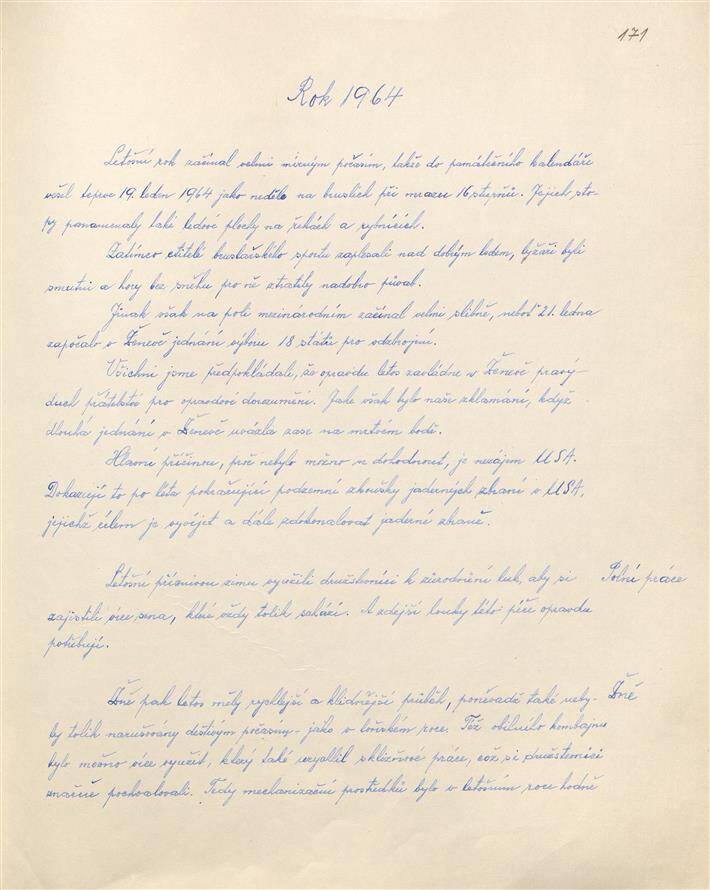 171
Rok 1964
Letošní rok začínal velmi mírným počasím, takže do památečního kalendáře
vešel teprve 19. leden 1964 jako neděle na bruslích při mrazu 16 stupňů. Jejich sto-
py poznamenaly také ledové plochy na řekách a rybnících.
Zatímco ctitelé bruslařského sportu zaplesali nad dobrým ledem, lyžaři byli
smutni a hory bez sněhu pro ně ztratily nadobro půvab.
Jinak však na poli mezinárodním začínal velmi slibně, neboť 21. ledna
započalo v Ženevě jednání výboru 18 států pro odzbrojení.
Všichni jsme předpokládali, že opravdu letos zavládne v Ženevě pravý
duch přátelství pro opravdové dorozumění. Jaké však bylo naše zklamání, když
dlouhá jednání v Ženevě uvázla zase na mrtvém bodě.
Hlavní příčinou, proč nebylo možno se dohodnout, je nezájem USA.
Dokazují to po léta pokračující podzemní zkoušky jaderných zbraní v USA,
jejichž cílem je vyvíjet a dále zdokonalovat jaderné zbraně.
Letošní příznivou zimu využili družstevníci k zúrodnění luk, aby si Polní práce
zajistili více sena, které vždy tolik schází. A zdejší louky této péče opravdu
potřebují.
Žně pak letos měly rychlejší a klidnější průběh, poněvadž také neby- Žně
ly tolik narušovány deštivým počasím - jako v loňském roce. Též obilního kombajnu
bylo možno více využít, který také urychlil sklizňové práce, což si družstevníci
značně pochvalovali. Tedy mechanizační prostředků bylo v letošním roce hodně